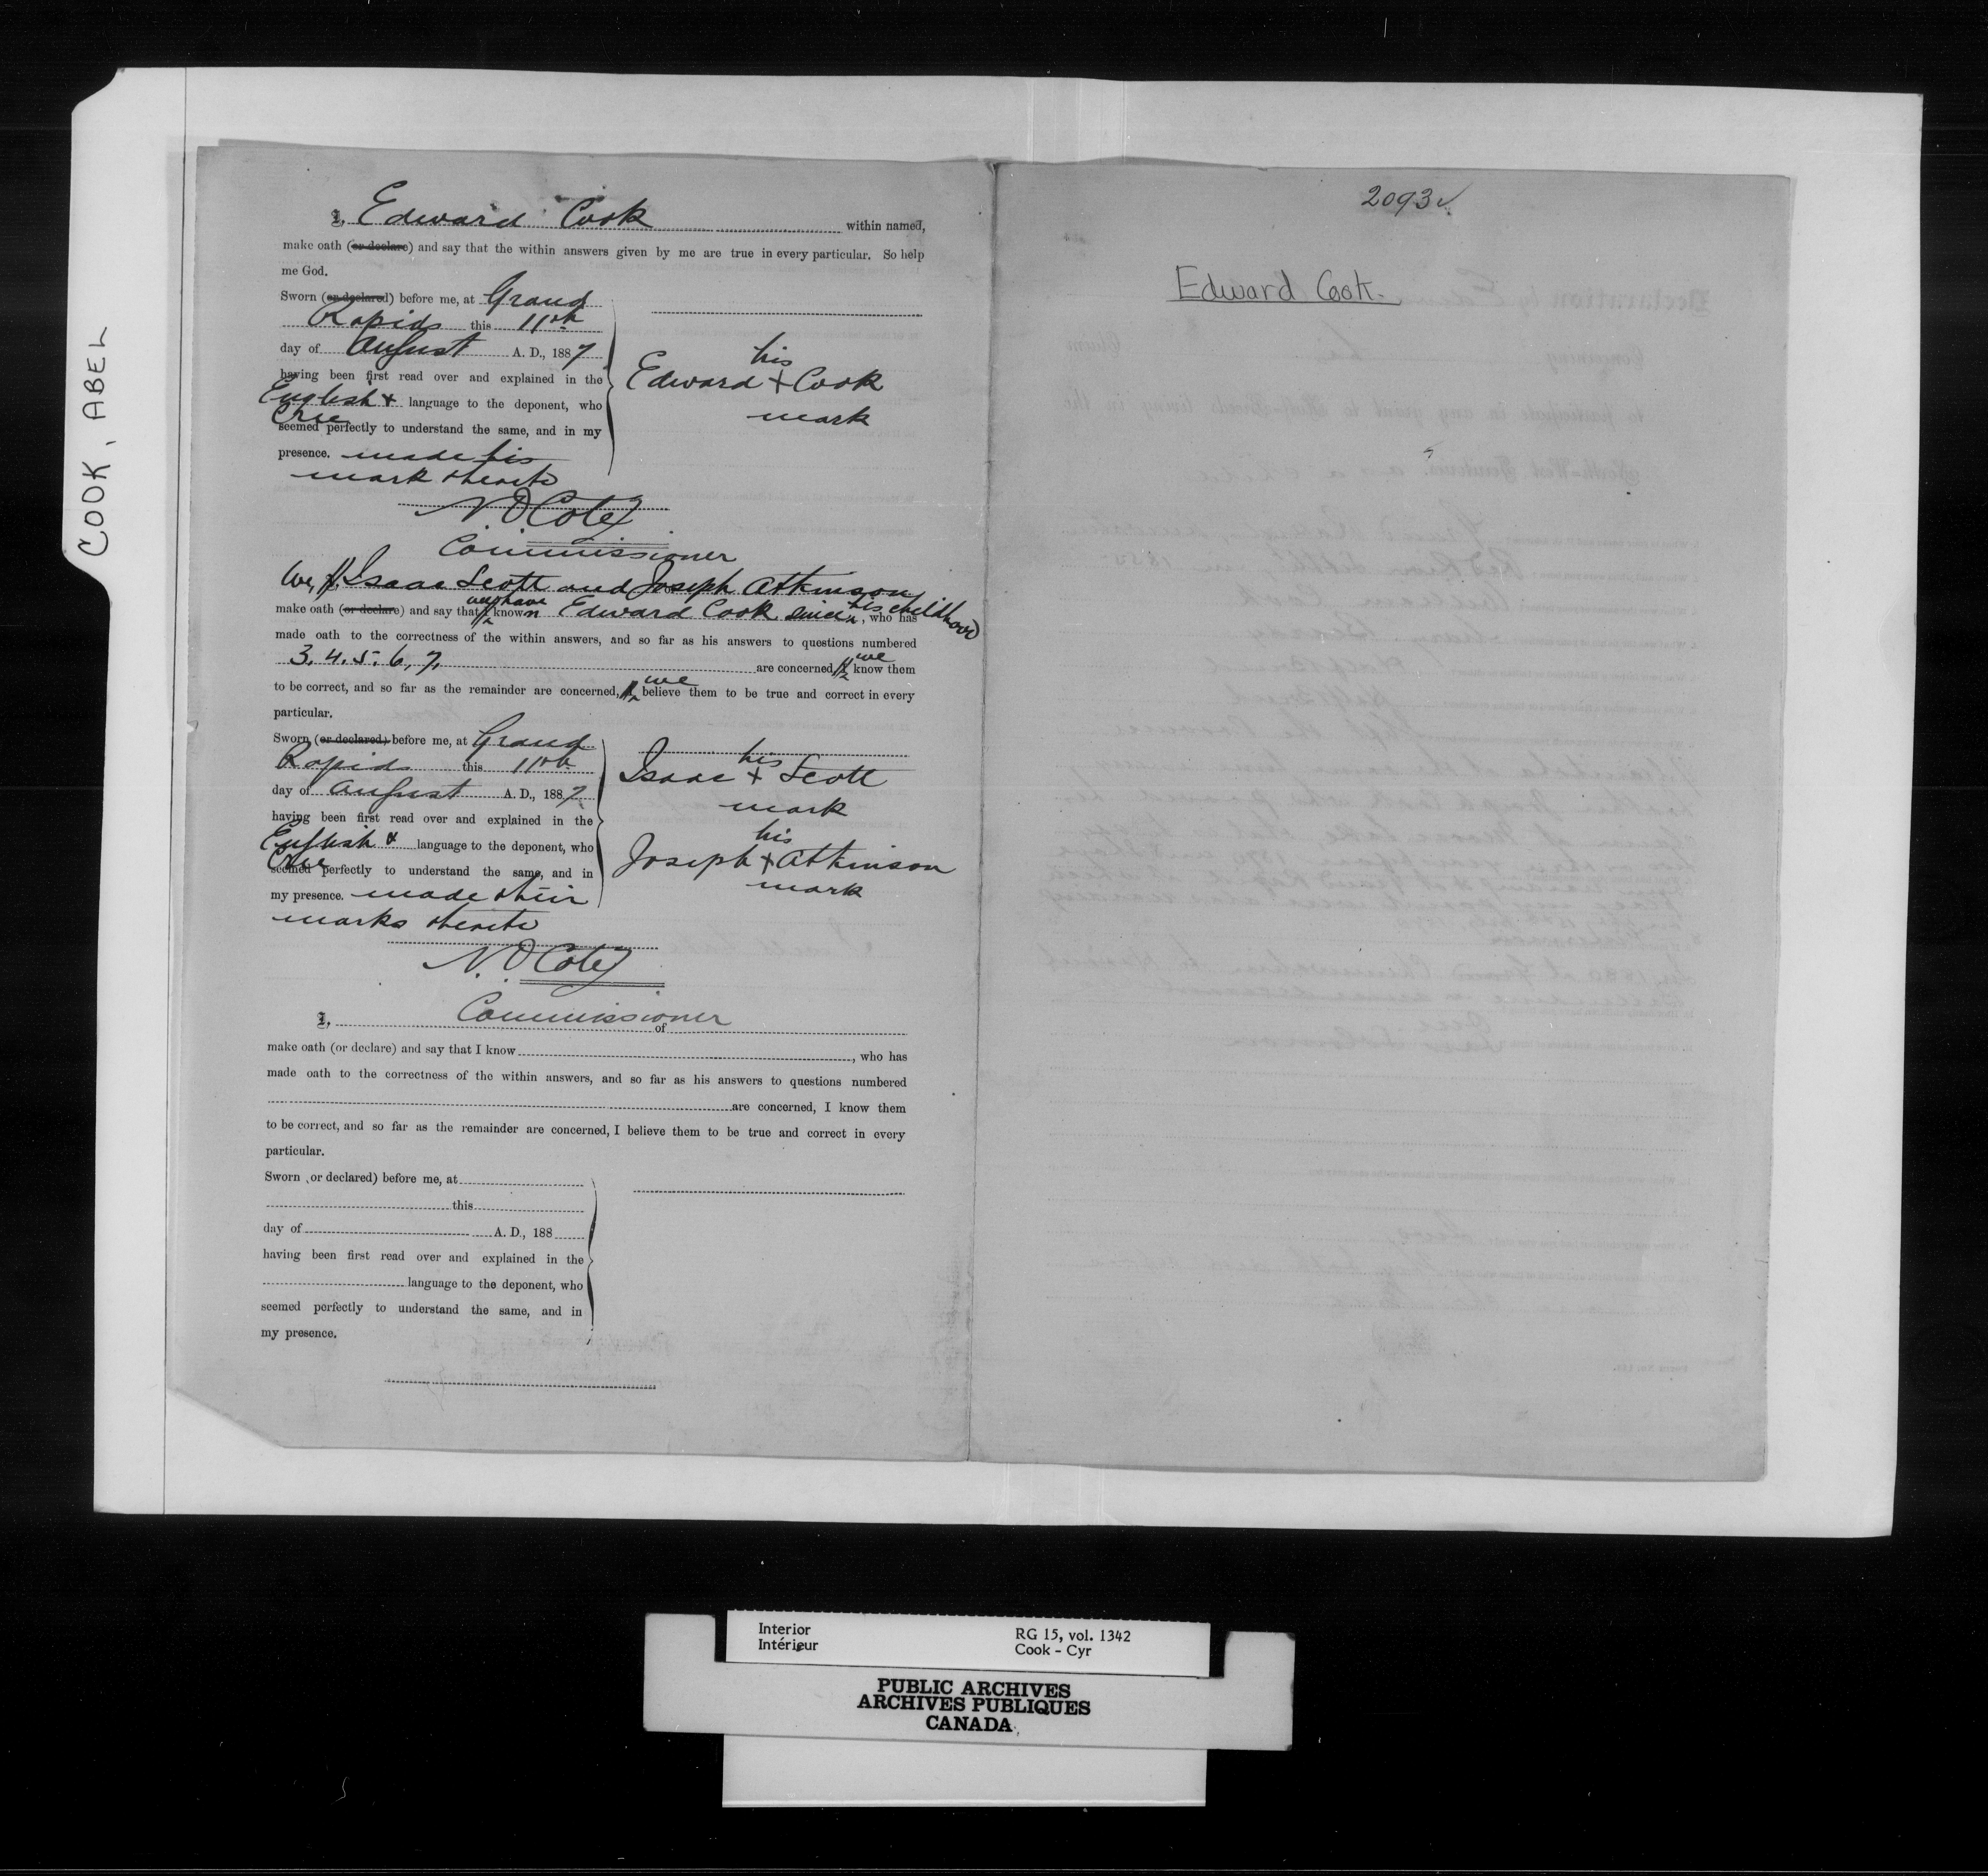 COOK, ABEL
I, Edward Cook within named,
make oath (or declare) and say that the within answers given by me are true in every particular. So help
me God.
Sworn (or declared) before me, at Grand
Rapids this 11th
day of August A. D., 1887
having been first read over and explained in the
English & language to the deponent, who
Cree
seemed perfectly to understand the same, and in my
presence. made his
mark thereto
his
Edward + Cook
mark
N.O. Coté
Commissioner
We, I, Isaac Scott and Joseph Atkinson
make oath (or declare) and say that I we have known Edward Cook since his childhood, who has
made oath to the correctness of the within answers, and so far as his answers to questions numbered
3. 4. 5. 6, 7. are concerned, I we know them
to be correct, and so far as the remainder are concerned, I we believe them to be true and correct in every
particular.
Sworn (or declared) before me, at Grand
Rapids this 11th
day of August A. D., 1887,
having been first read over and explained in the
English & language to the deponent, who
Cree
seemed perfectly to understand the same, and in
my presence. made their
marks thereto
his
Isaac + Scott
mark
his
Joseph + Atkinson
mark
N.O. Coté
Commissioner
I, of
make oath (or declare) and say that I know , who has
made oath to the correctness of the within answers, and so far as his answers to questions numbered
are concerned, I know them
to be correct, and so far as the remainder are concerned, I believe them to be true and correct in every
particular.
Sworn (or declared) before me, at
this
day of A. D., 188
having been first read over and explained in the
language to the deponent, who
seemed perfectly to understand the same, and in
my presence.
2093
Edward Cook.
Interior
Intérieur
RG 15, vol. 1342
Cook - Cyr
PUBLIC ARCHIVES
ARCHIVES PUBLIQUES
CANADA